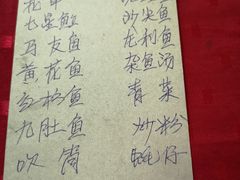 七星鱼
沙尖鱼
马友鱼
龙利鱼
黄花鱼
杂鱼汤
红杉鱼
青菜
九肚鱼
炒粉
吹筒
蚝仔